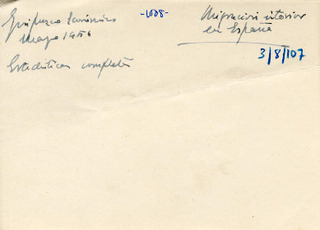 Guipuzcoa Económica
Mayo 1956
Estadísticas completas
-1008-
Migración interior
en España
3/8/107